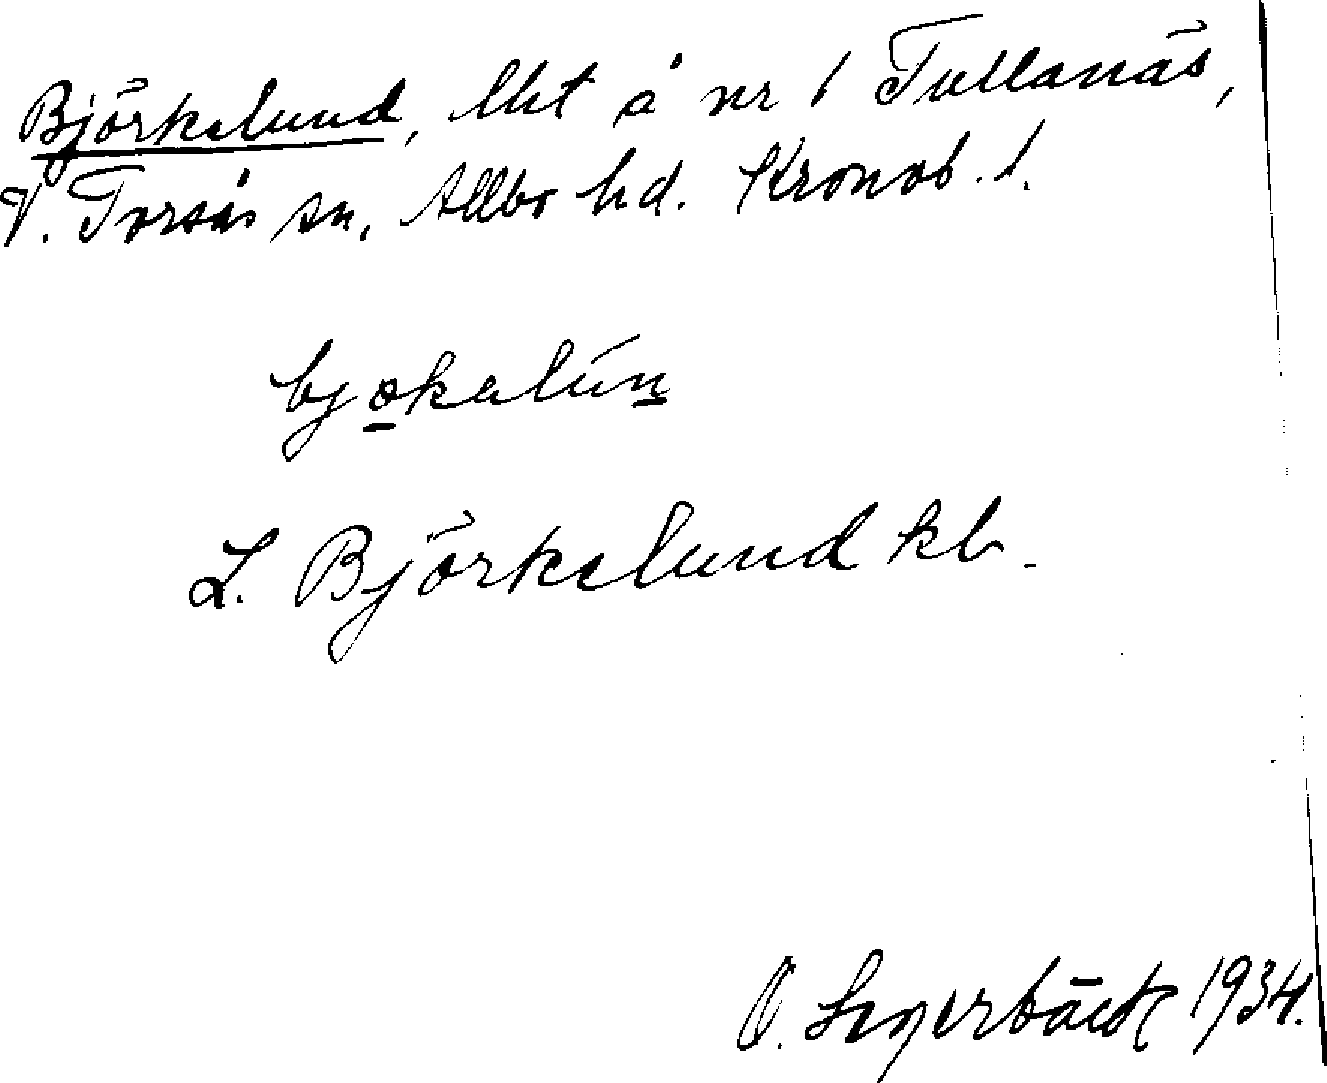 Björkelund, lht å nr 1 Tullanäs,
V. Torsås sn, Allbo hd. Kronob. l.
bjo̲kelún̲
L. Björkelund kb.
O. Segerbäck 1934.